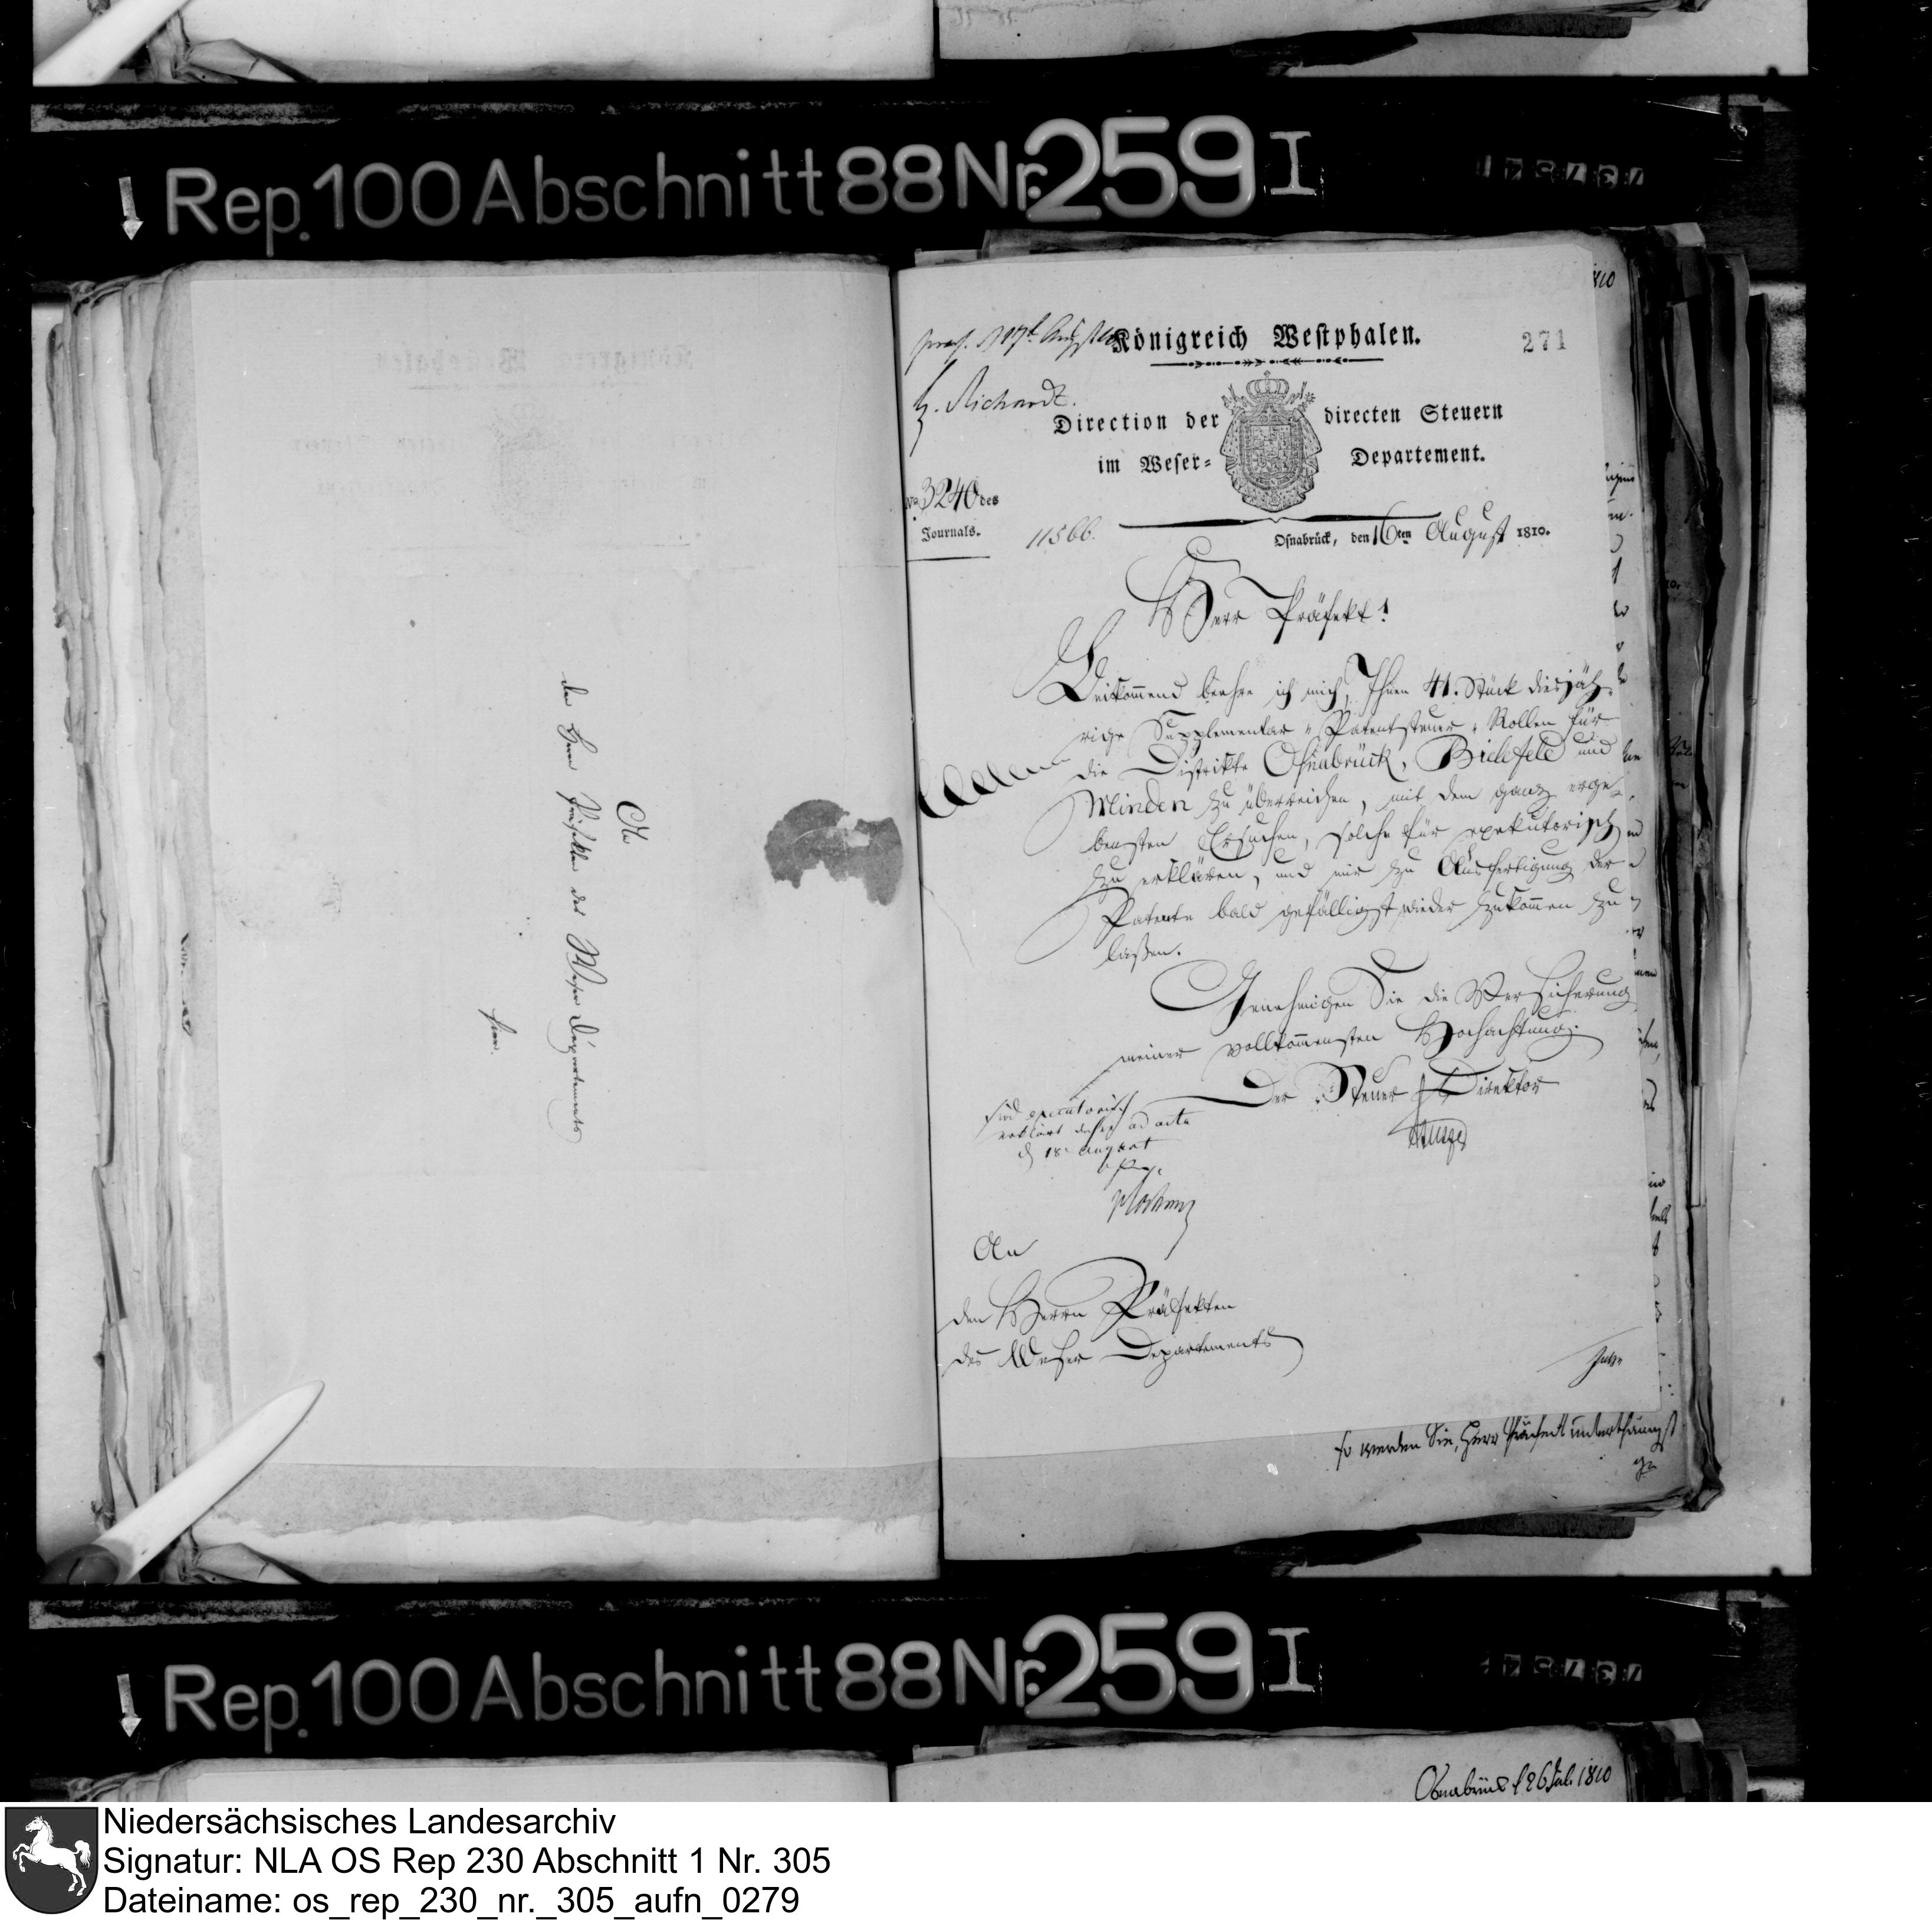 Rep. 100 Abschnitt 88 Nr. 259 I
An
den Herrn Präfekten des Weser Departements
hier.
271
Königreich Westphalen.
Richard.
Direction der directen Steuern
im Weser- Departement.
No 3240 des
Journals.
11566.
Osnabrück, den 16ten August 1810.
Herr Präfekt!
Beikommend beehre ich mich, Ihnen 41. Stück diesjäh-
rige Supplementar-Patentsteuer-Rollen für
die Distrikte Osnabrück, Bielefeld und
Minden zu überreichen, mit dem ganz erge-
bensten Ersuchen, solche für exekutorisch
zu erklären, und mir zu Ausfertigung der
Patente bald gefälligst wieder zukom̄en zu
laßen.
Genehmigen Sie die Versicherung
meiner vollkom̄ensten Hochachtung.
Der Steuer Direktor
sind executorisch
erklärt ad acta
18 August
An
den Herrn Präfekten
des Weser Departements
so werden Sie, Herr Präfect
Rep. 100 Abschnitt 88 Nr. 259 I
Osnabrück d 26 Juli 1810
Niedersächsisches Landesarchiv
Signatur: NLA OS Rep 230 Abschnitt 1 Nr. 305
Dateiname: os_rep_230_nr._305_aufn_0279